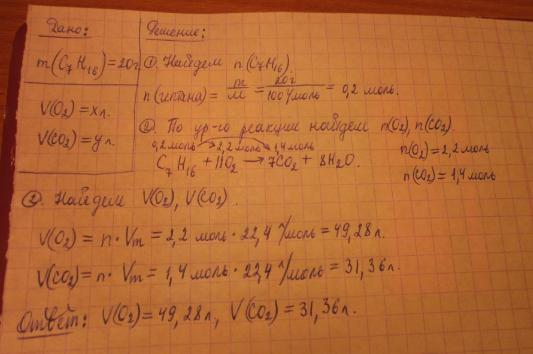 Дано:
m(C₇H₁₆)=20г
V(O₂)=xл.
V(CO₂)=yл.
Решение:
① Найдем n(C₇H₁₆).
n(гептана)= m/M = 20г/100г/моль = 0,2 моль.
② По ур-го реакции найдем n(O₂), n(CO₂).
0,2моль → 2,2моль 1,4моль
C₇H₁₆ + 11O₂ → 7CO₂ + 8H₂O.
n(O₂)=2,2моль
n(CO₂)=1,4моль
③. Найдем V(O₂), V(CO₂).
V(O₂)= n · Vm = 2,2 моль · 22,4 л/моль = 49,28л.
V(CO₂)= n · Vm = 1,4 моль · 22,4 л/моль = 31,36л.
Ответ: V(O₂)=49,28л, V(CO₂)=31,36л.